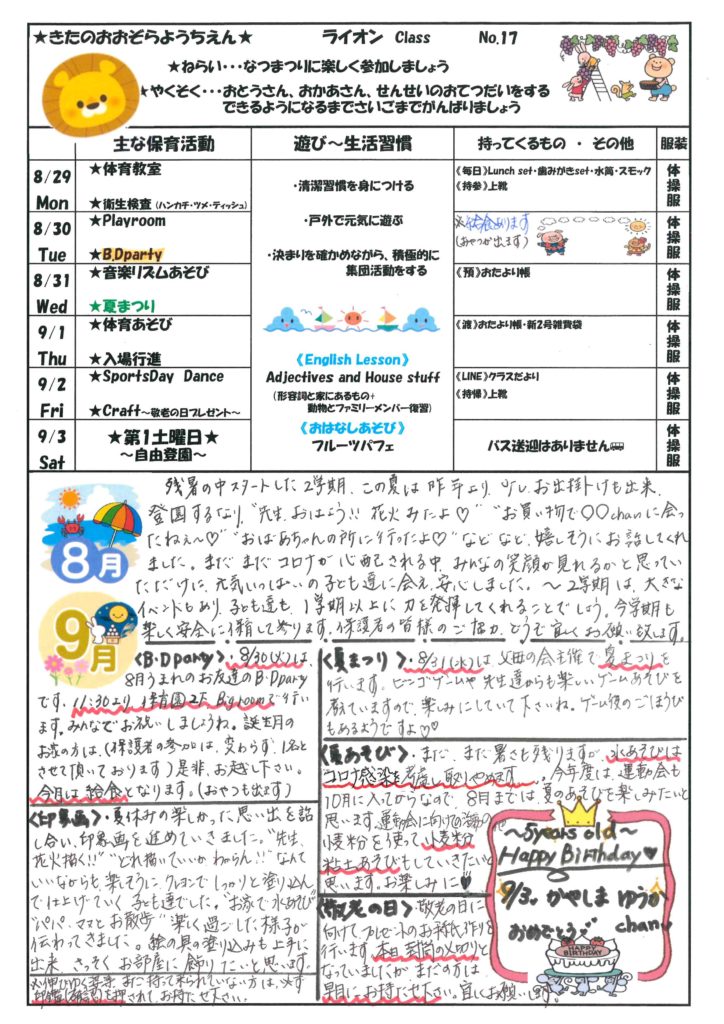 ★きたのおおぞらようちえん★ ライオン Class No.17
★ねらい･･･なつまつりに楽しく参加しましょう
★やくそく･･･おとうさん、おかあさん、せんせいのおてつだいをする
できるようになるまでさいごまでがんばりましょう
主な保育活動 遊び～生活習慣 持ってくるもの ・ その他 服装
8/29 Mon
★体育教室
★衛生検査（ハンカチ・ツメ・ティッシュ）
《毎日》Lunch set・歯みがきset・水筒・スモック
《持参》上靴
体操服
8/30 Tue
★Playroom
★B.Dparty
※給食あります
（おやつが出ます）
体操服
8/31 Wed
★音楽リズムあそび
★夏まつり
《預》おたより帳
体操服
9/1 Thu
★体育あそび
★入場行進
《渡》おたより帳・新2号雑費袋
体操服
9/2 Fri
★SportsDay Dance
★Craft～敬老の日プレゼント～
《LINE》クラスだより
《持帰》上靴
体操服
9/3 Sat
★第1土曜日★
～自由登園～
バス送迎はありません
体操服
・清潔習慣を身につける
・戸外で元気に遊ぶ
・決まりを確かめながら、積極的に
集団活動をする
《English Lesson》
Adjectives and House stuff
（形容詞と家にあるもの+
動物とファミリーメンバー復習）
《おはなしあそび》
フルーツパフェ
8月
9月
残暑の中スタートした2学期、この夏は昨年より、少し、お出掛けも出来、
登園するなり、"先生、おはよう!! 花火みたよ♡" "お買い物で〇〇chanに会っ
たねぇ～♡" "おばあちゃんの所に行ったよ♡" などなど、嬉しそうにお話してくれ
ました。まだまだコロナが心配される中、みんなの笑顔が見れるかと思ってい
ただけに、元気いっぱいの子ども達に会え、安心しました。～2学期は、大きな
イベントもあり、子ども達も、1学期以上に力を発揮してくれることでしょう。今学期も
楽しく安全に保育して参ります。保護者の皆様のご協力、どうぞ宜しくお願い致します。
〈B.Dparty〉・8/30(火)は、
8月うまれのお友達のB.Dparty
です。11:30より、保育園2F Bigroomで行い
ます。みんなでお祝いしましょうね。誕生月の
お家の方は、(保護者の参加は、変わらず、1名と
させて頂いております)是非、お越し下さい。
今月は給食となります。(おやつも出ます)
〈印象画〉・夏休みの楽しかった思い出を話
し合い、印象画を進めていきました。"先生、
花火描く!!" "どれ描いていいかわからん!!" なんて
いいながらも、楽しそうに、クレヨンでしっかりと塗り込ん
で仕上げていく子ども達でした。"お家で水あそび"
"パパ、ママとお散歩" 楽しく過ごした様子が
伝わってきました。絵の具の塗り込みも上手に
出来、さっそくお部屋に飾りたいと思います。
まだ持って来られていない方は、
押され、お持ち下さい。
〈夏まつり〉・8/31(水)は父母の会主催で、夏まつりを
行います。ビンゴゲームや先生達からも楽しいゲームあそびを
考えていますので、楽しみにしていて下さいね。ゲーム後のごほうび
もあるようですよ♡♡
〈夏あそび〉・まだまだ暑さも残りますが、水あそびは
コロナ感染を考慮し取りやめます。今年度は、運動会も
10月に入ってからなので、8月までは、夏のあそびを楽しみたいと
思います。運動会に向けての
小麦粉を使って、小麦粉
粘土あそびもしていきたいと
思います。お楽しみに♡
〈敬老の日〉・敬老の日に
向けて、プレゼントのお神氏作りを
行います。本日、封筒の〆切りと
なっていましたが、まだの方は
早目にお持ち下さい。宜しくお願いします。
～5years old～
Happy Birthday♥
9/3. かやしま ゆうか
chan
おめでとう♡
HAPPY BIRTHDAY